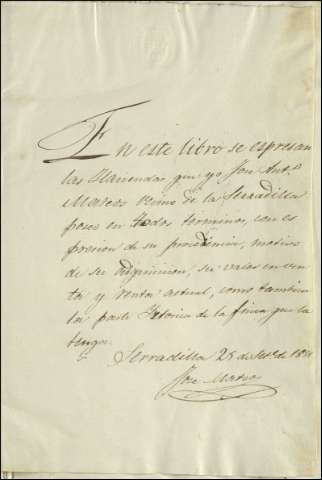 En este libro se espresan
las Haciendas que yo José Ant.º
Mateos vecino de la Serradilla
poseo en todos terminos, con es
presion de su procedencia, motivo
de su adquisicion, su valor en ven
ta y renta actual, como tambien
la parte Istorica de la finca que la
tenga.
Serradilla 25 de Set.e de
José Mateos